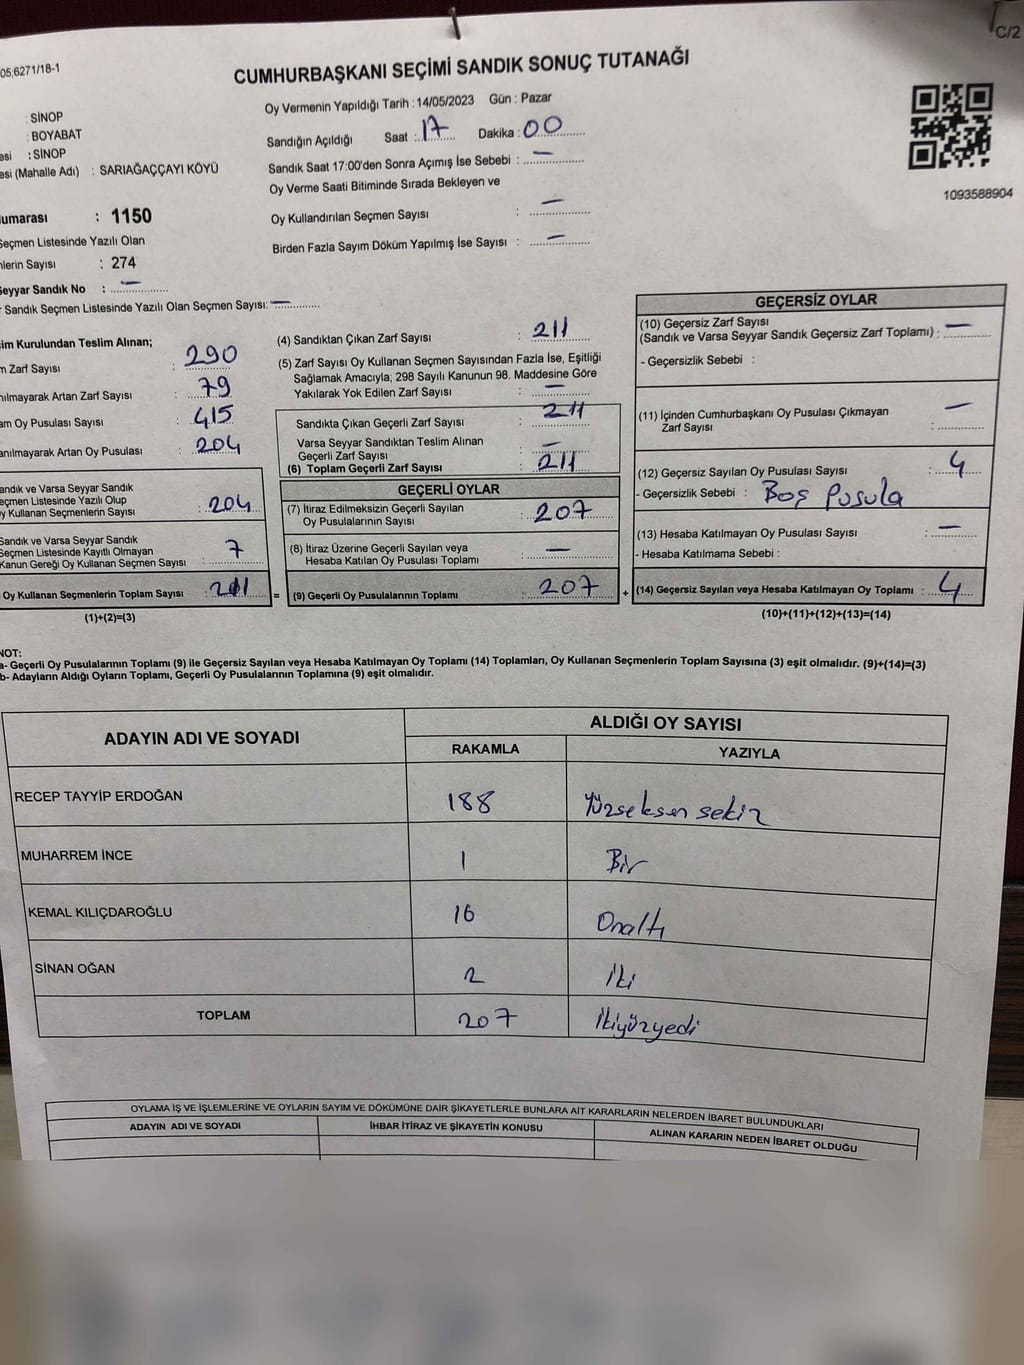 C/2
05;6271/18-1
CUMHURBAŞKANI SEÇİMİ SANDIK SONUÇ TUTANAĞI
: SİNOP
: BOYABAT
esi : SİNOP
esi (Mahalle Adı) : SARIAĞAÇÇAYI KÖYÜ
umarası : 1150
Seçmen Listesinde Yazılı Olan
nlerin Sayısı : 274
Seyyar Sandık No : —
r Sandık Seçmen Listesinde Yazılı Olan Seçmen Sayısı: —
Oy Vermenin Yapıldığı Tarih : 14/05/2023 Gün : Pazar
Sandığın Açıldığı Saat : 17 Dakika : 00
Sandık Saat 17:00'den Sonra Açımış İse Sebebi : —
Oy Verme Saati Bitiminde Sırada Bekleyen ve
Oy Kullandırılan Seçmen Sayısı : —
Birden Fazla Sayım Döküm Yapılmış İse Sayısı : —
1093588904
im Kurulundan Teslim Alınan;
m Zarf Sayısı : 290
nılmayarak Artan Zarf Sayısı : 79
am Oy Pusulası Sayısı : 415
anılmayarak Artan Oy Pusulası : 204
andık ve Varsa Seyyar Sandık
eçmen Listesinde Yazılı Olup
y Kullanan Seçmenlerin Sayısı : 204
Sandık ve Varsa Seyyar Sandık
Seçmen Listesinde Kayıtlı Olmayan
Kanun Gereği Oy Kullanan Seçmen Sayısı : 7
Oy Kullanan Seçmenlerin Toplam Sayısı : 211 =
(1)+(2)=(3)
(4) Sandıktan Çıkan Zarf Sayısı : 211
(5) Zarf Sayısı Oy Kullanan Seçmen Sayısından Fazla İse, Eşitliği
Sağlamak Amacıyla; 298 Sayılı Kanunun 98. Maddesine Göre
Yakılarak Yok Edilen Zarf Sayısı : —
Sandıkta Çıkan Geçerli Zarf Sayısı : 211
Varsa Seyyar Sandıktan Teslim Alınan
Geçerli Zarf Sayısı : —
(6) Toplam Geçerli Zarf Sayısı : 211
GEÇERLİ OYLAR
(7) İtiraz Edilmeksizin Geçerli Sayılan
Oy Pusulalarının Sayısı : 207
(8) İtiraz Üzerine Geçerli Sayılan veya
Hesaba Katılan Oy Pusulası Toplamı : —
(9) Geçerli Oy Pusulalarının Toplamı : 207 +
GEÇERSİZ OYLAR
(10) Geçersiz Zarf Sayısı
(Sandık ve Varsa Seyyar Sandık Geçersiz Zarf Toplamı) : —
- Geçersizlik Sebebi :
(11) İçinden Cumhurbaşkanı Oy Pusulası Çıkmayan
Zarf Sayısı : —
(12) Geçersiz Sayılan Oy Pusulası Sayısı : 4
- Geçersizlik Sebebi : Boş Pusula
(13) Hesaba Katılmayan Oy Pusulası Sayısı : —
- Hesaba Katılmama Sebebi :
(14) Geçersiz Sayılan veya Hesaba Katılmayan Oy Toplamı : 4
(10)+(11)+(12)+(13)=(14)
NOT:
a- Geçerli Oy Pusulalarının Toplamı (9) ile Geçersiz Sayılan veya Hesaba Katılmayan Oy Toplamı (14) Toplamları, Oy Kullanan Seçmenlerin Toplam Sayısına (3) eşit olmalıdır. (9)+(14)=(3)
b- Adayların Aldığı Oyların Toplamı, Geçerli Oy Pusulalarının Toplamına (9) eşit olmalıdır.
ADAYIN ADI VE SOYADI
ALDIĞI OY SAYISI
RAKAMLA YAZIYLA
RECEP TAYYİP ERDOĞAN 188 Yüzseksen sekiz
MUHARREM İNCE 1 Bir
KEMAL KILIÇDAROĞLU 16 Onaltı
SİNAN OĞAN 2 İki
TOPLAM 207 İkiyüzyedi
OYLAMA İŞ VE İŞLEMLERİNE VE OYLARIN SAYIM VE DÖKÜMÜNE DAİR ŞİKAYETLERLE BUNLARA AİT KARARLARIN NELERDEN İBARET BULUNDUKLARI
ADAYIN ADI VE SOYADI İHBAR İTİRAZ VE ŞİKAYETİN KONUSU ALINAN KARARIN NEDEN İBARET OLDUĞU